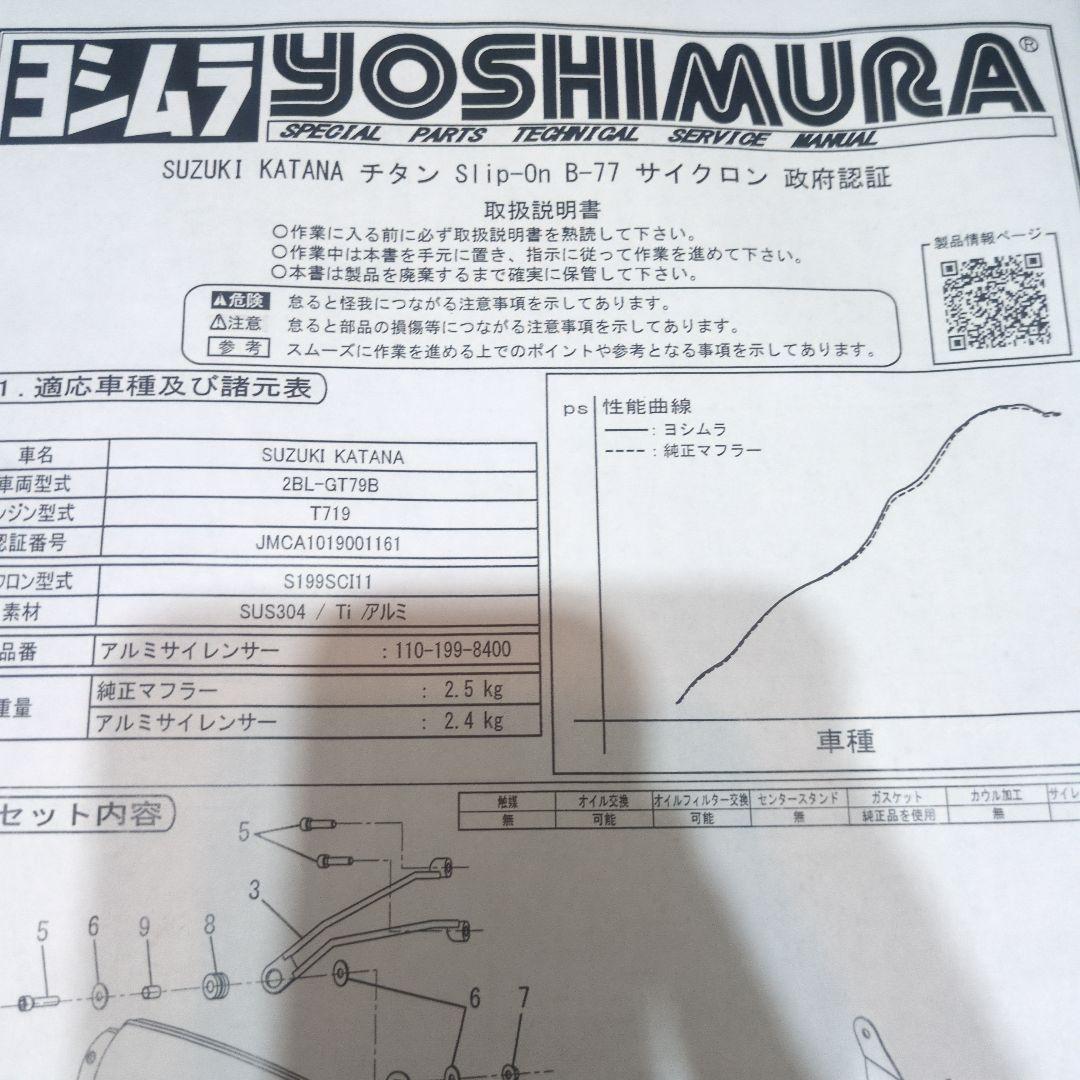 ヨシムラ YOSHIMURA®
SPECIAL PARTS TECHNICAL SERVICE MANUAL
SUZUKI KATANA チタン Slip-On B-77 サイクロン 政府認証
取扱説明書
○作業に入る前に必ず取扱説明書を熟読して下さい。
○作業中は本書を手元に置き、指示に従って作業を進めて下さい。
○本書は製品を廃棄するまで確実に保管して下さい。
製品情報ページ
⚠危険 怠ると怪我につながる注意事項を示してあります。
⚠注意 怠ると部品の損傷等につながる注意事項を示してあります。
参考 スムーズに作業を進める上でのポイントや参考となる事項を示してあります。
1.適応車種及び諸元表
車名 SUZUKI KATANA
車両型式 2BL-GT79B
ンジン型式 T719
認証番号 JMCA1019001161
クロン型式 S199SCI11
素材 SUS304 / Ti /アルミ
品番 アルミサイレンサー :110-199-8400
重量 純正マフラー : 2.5 kg
アルミサイレンサー : 2.4 kg
ps 性能曲線
——:ヨシムラ
----:純正マフラー
車種
セット内容
触媒 オイル交換 オイルフィルター交換 センタースタンド ガスケット カウル加工 サイレ
無 可能 可能 無 純正品を使用 無
5
3
5 6 9 8
6 7